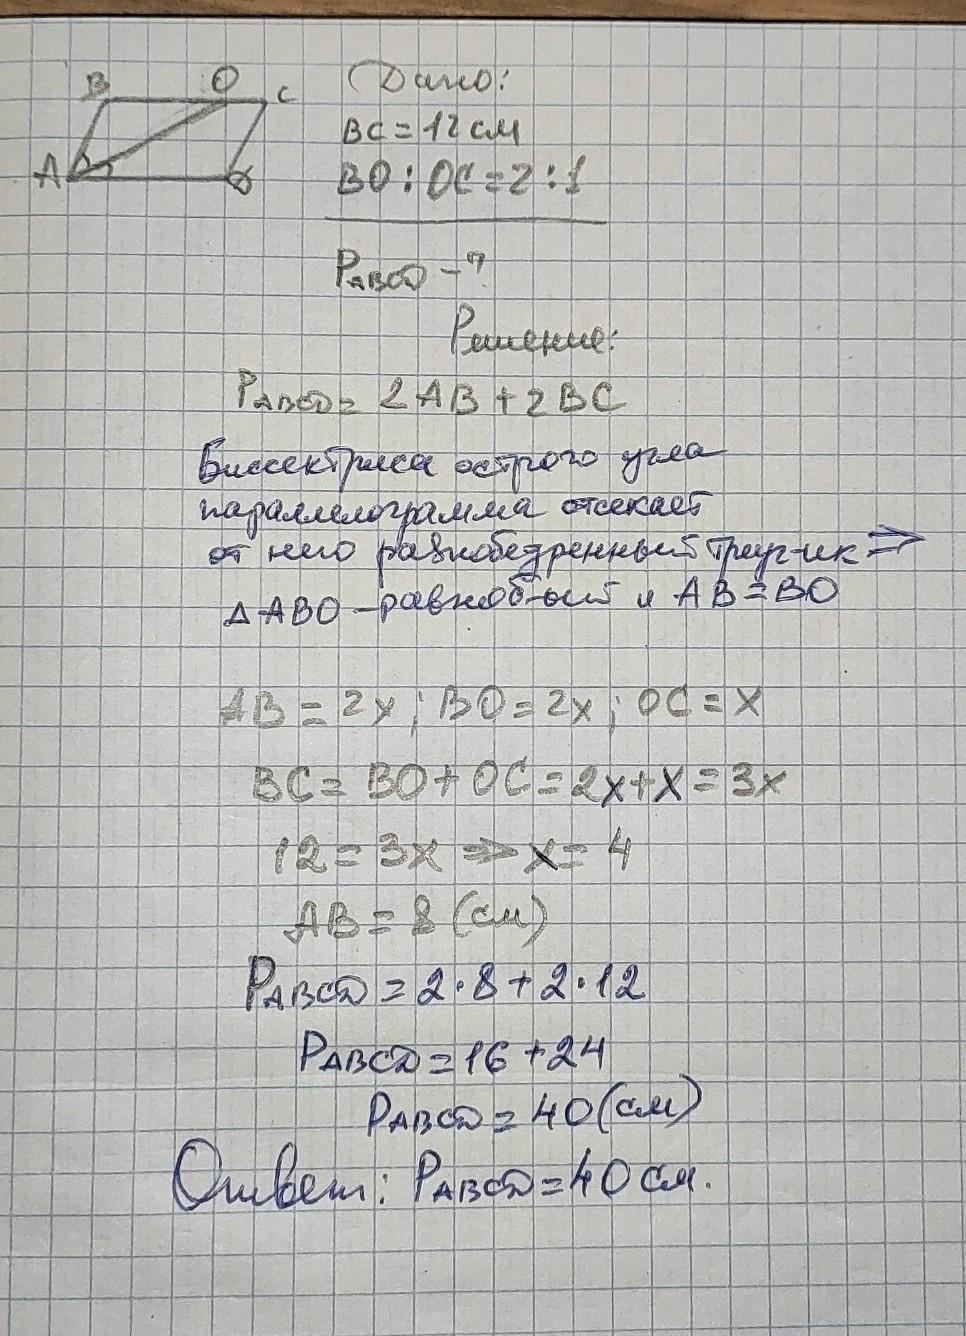 B O C
A D
Дано:
BC = 12 см
BO : OC = 2 : 1
PABCD - ?
Решение:
PABCD = 2AB + 2BC
Биссектриса острого угла
параллелограмма отсекает
от него равнобедренный треуг-ик =>
Δ ABO - равноб-ый и AB = BO
AB = 2x ; BO = 2x ; OC = x
BC = BO + OC = 2x + x = 3x
12 = 3x => x = 4
AB = 8 (см)
PABCD = 2·8 + 2·12
PABCD = 16 + 24
PABCD = 40 (см)
Ответ: PABCD = 40 см.